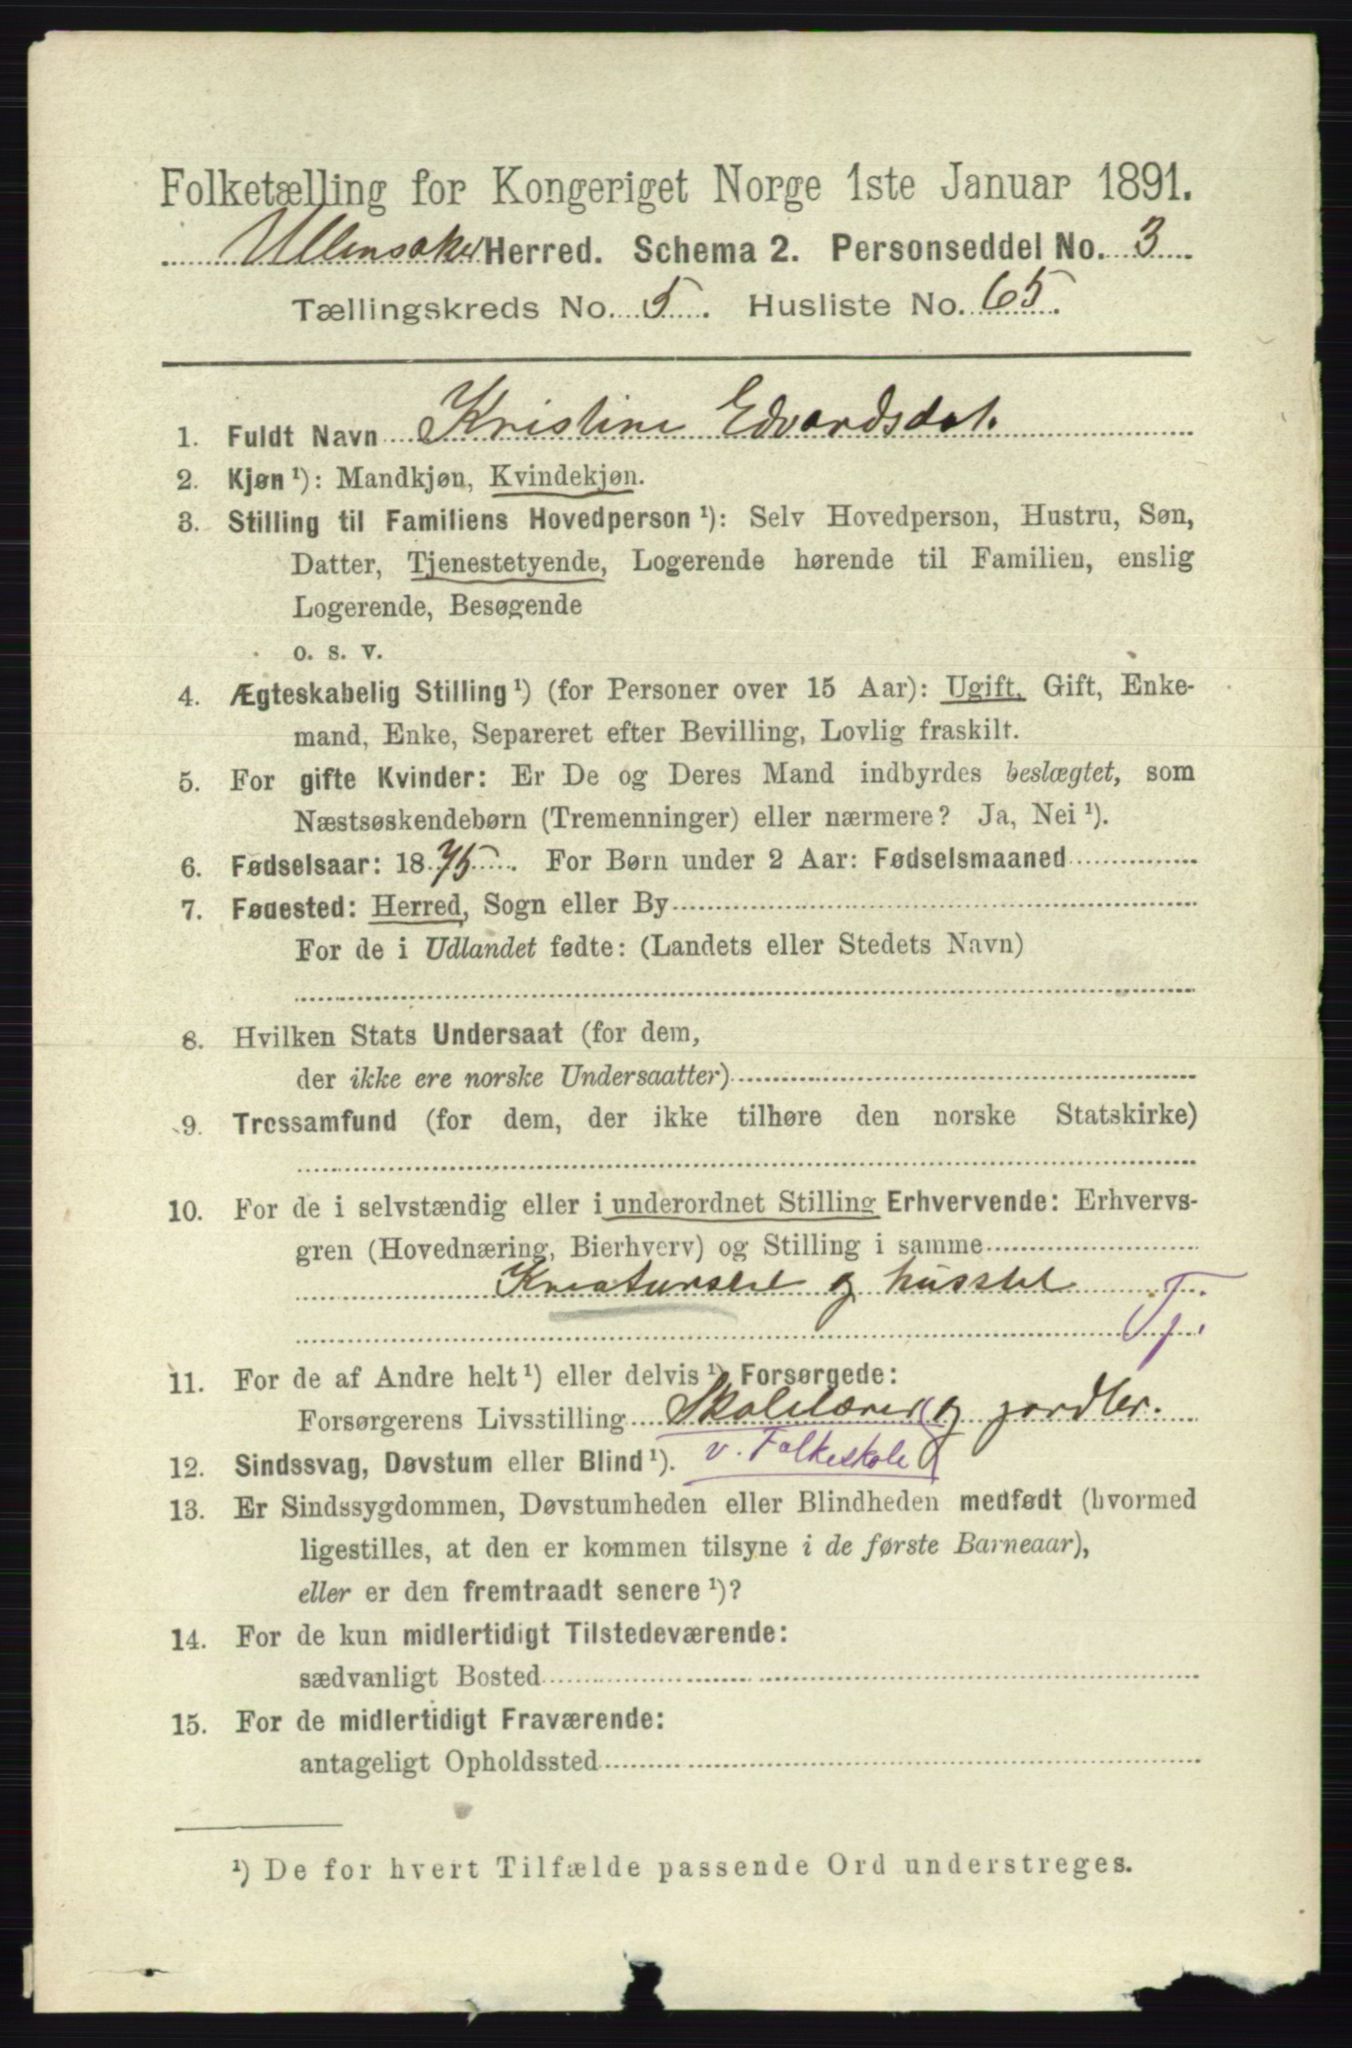 Folketælling for Kongeriget Norge 1ste Januar 1891.
Ullensaker Herred. Schema 2. Personseddel No. 3
Tællingskreds No. 5. Husliste No. 65.
1. Fuldt Navn Kristine Edvardsdat.
2. Kjøn ¹): Mandkjøn, Kvindekjøn.
3. Stilling til Familiens Hovedperson ¹): Selv Hovedperson, Hustru, Søn,
Datter, Tjenestetyende, Logerende hørende til Familien, enslig
Logerende, Besøgende
o. s. v.
4. Ægteskabelig Stilling ¹) (for Personer over 15 Aar): Ugift, Gift, Enke-
mand, Enke, Separeret efter Bevilling, Lovlig fraskilt.
5. For gifte Kvinder: Er De og Deres Mand indbyrdes beslægtet, som
Næstsøskendebørn (Tremenninger) eller nærmere? Ja, Nei ¹).
6. Fødselsaar: 1875. For Børn under 2 Aar: Fødselsmaaned
7. Fødested: Herred, Sogn eller By
For de i Udlandet fødte: (Landets eller Stedets Navn)
8. Hvilken Stats Undersaat (for dem,
der ikke ere norske Undersaatter)
9. Trossamfund (for dem, der ikke tilhøre den norske Statskirke)
10. For de i selvstændig eller i underordnet Stilling Erhvervende: Erhvervs-
gren (Hovednæring, Bierhverv) og Stilling i samme
Kreaturstel og husstel
Tj.
11. For de af Andre helt ¹) eller delvis ¹) Forsørgede:
Forsørgerens Livsstilling Skolelærer og jordbr.
12. Sindssvag, Døvstum eller Blind ¹). v. Folkeskole
13. Er Sindssygdommen, Døvstumheden eller Blindheden medfødt (hvormed
ligestilles, at den er kommen tilsyne i de første Barneaar),
eller er den fremtraadt senere ¹)?
14. For de kun midlertidigt Tilstedeværende:
sædvanligt Bosted
15. For de midlertidigt Fraværende:
antageligt Opholdssted
¹) De for hvert Tilfælde passende Ord understreges.